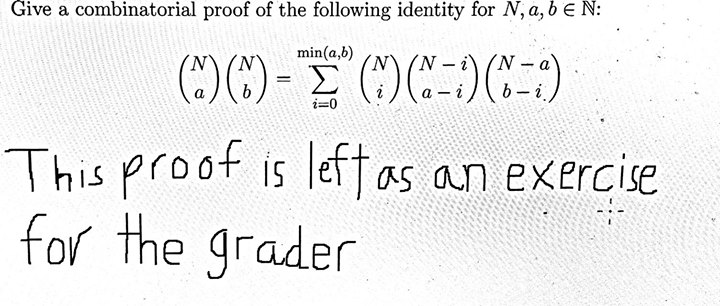 Give a combinatorial proof of the following identity for N, a, b ∈ ℕ:
(N a)(N b) = ∑_{i=0}^{min(a,b)} (N i)(N − i a − i)(N − a b − i)
This proof is left as an exercise
for the grader